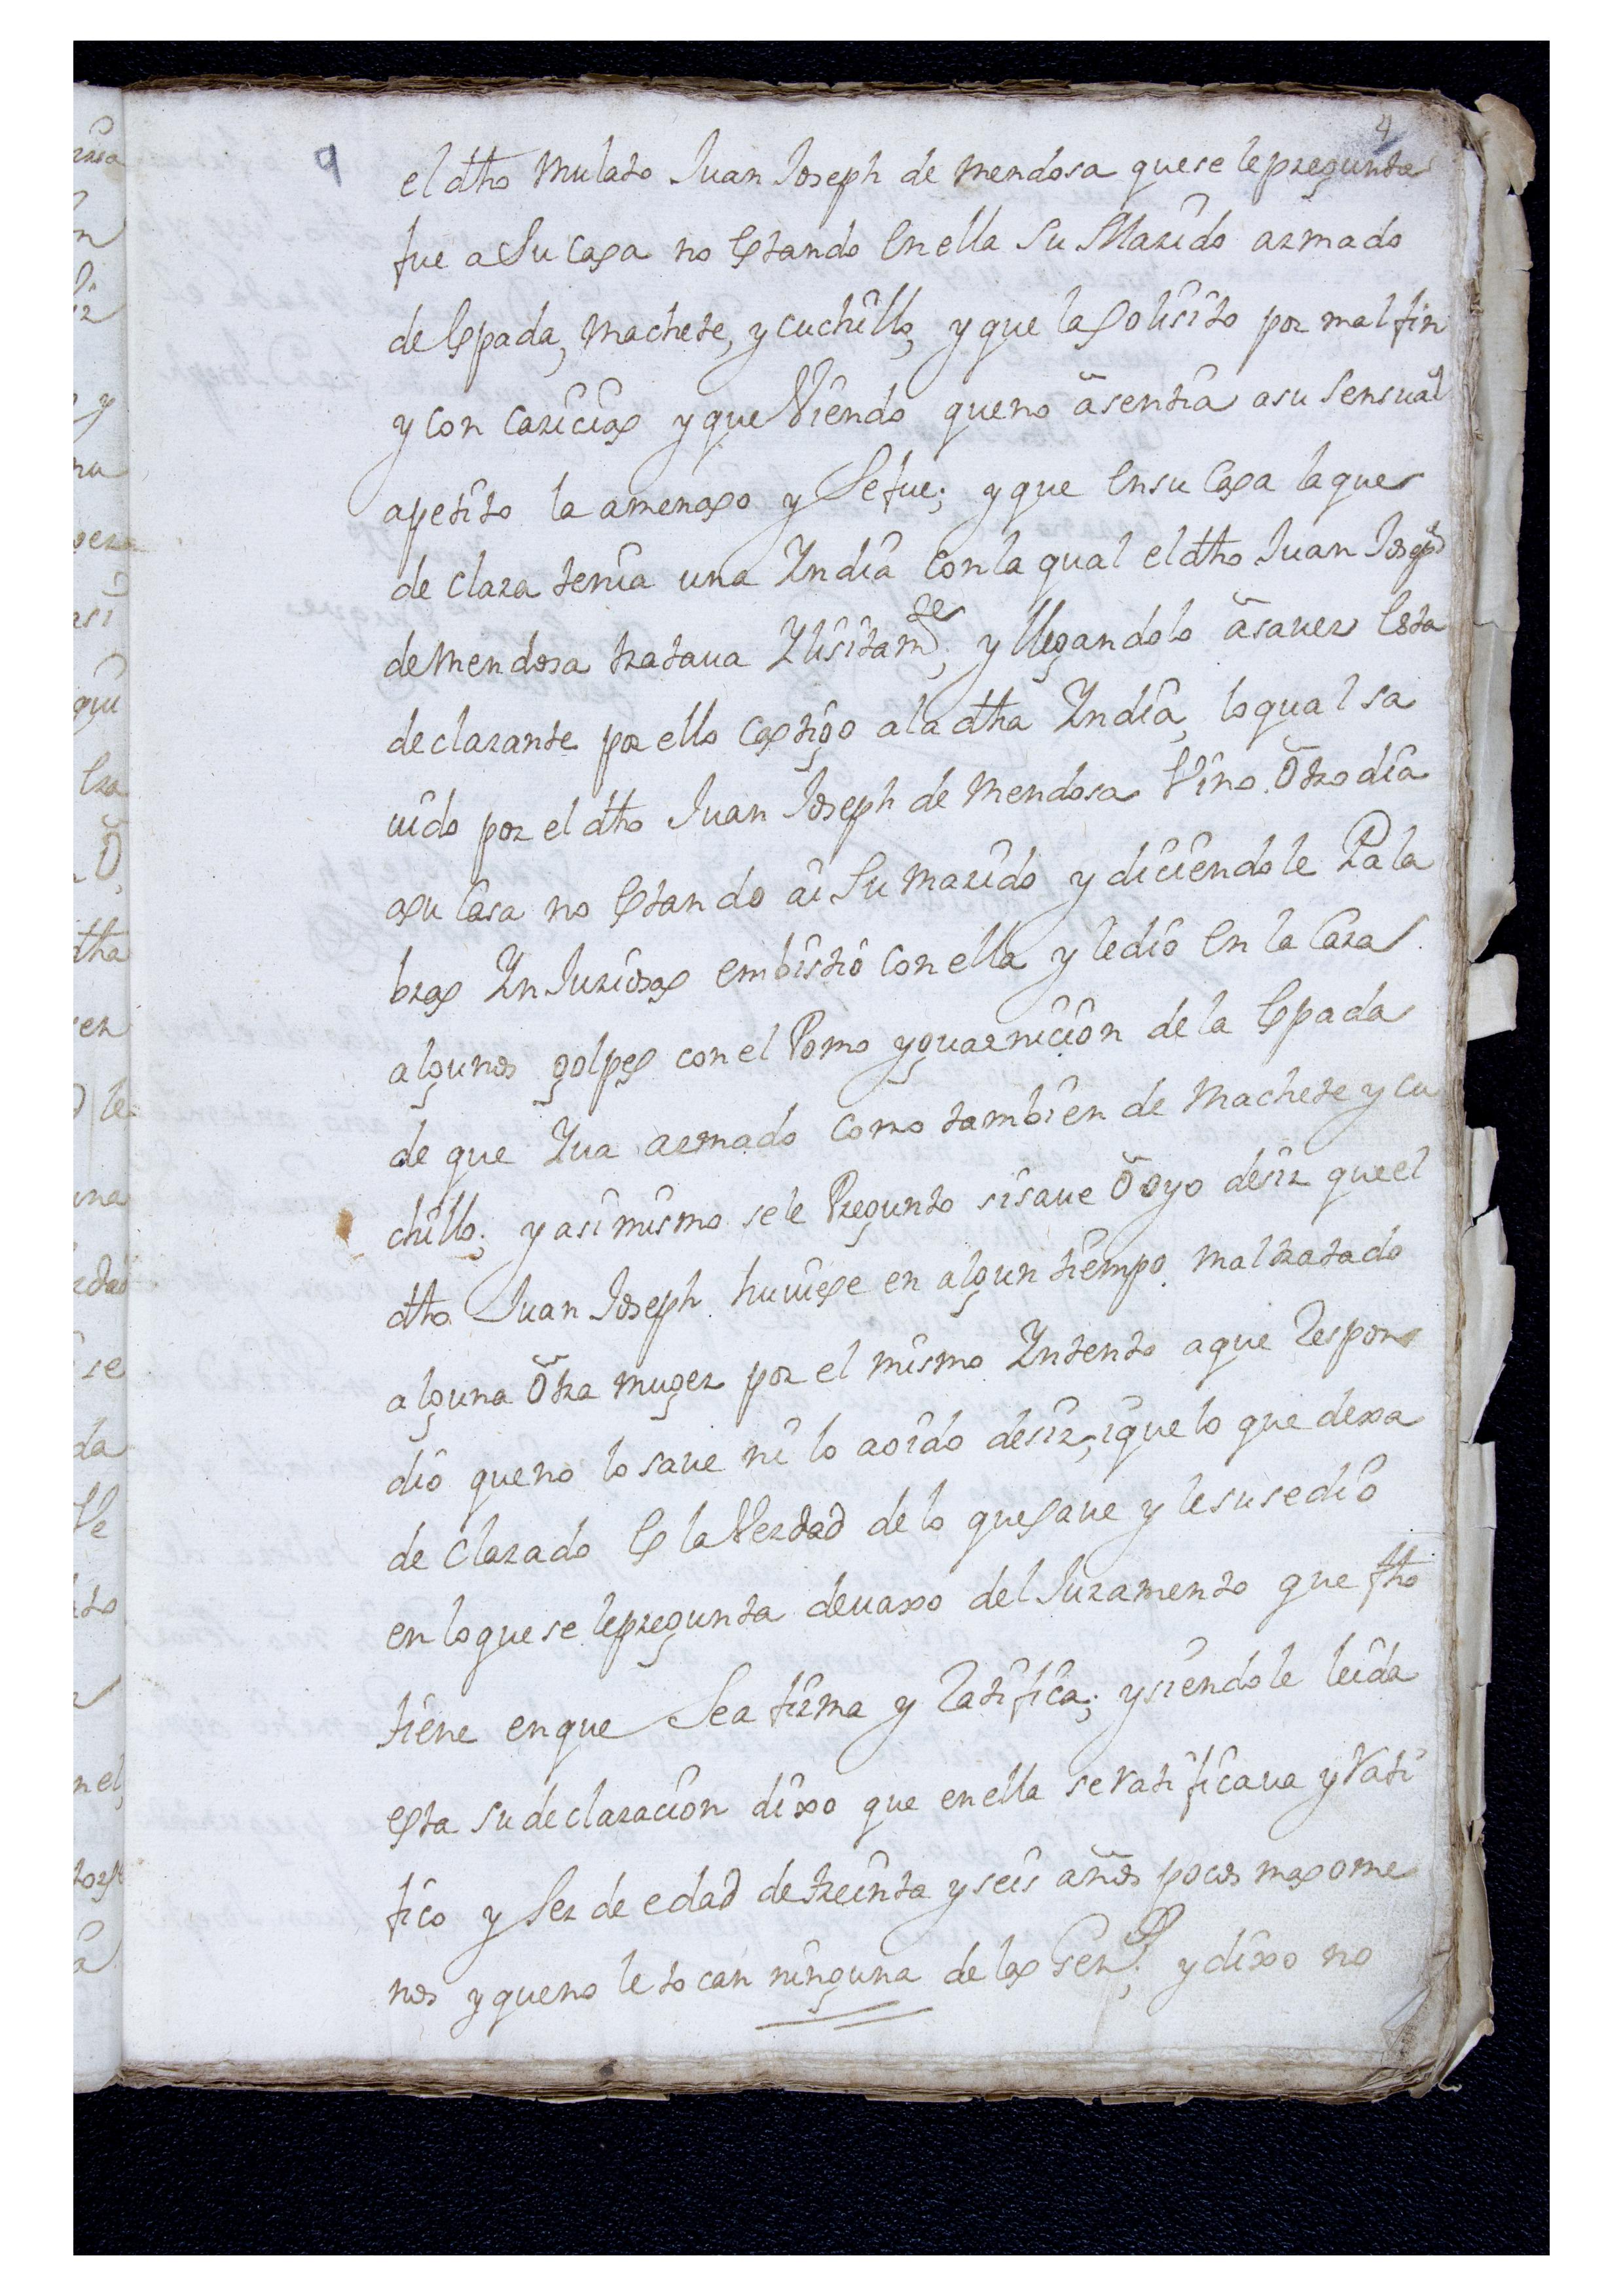 9
4
el dho Mulato Juan Joseph de Mendosa que se le pregunta
fue a Su casa no estando En ella Su Marido armado
de Espada, Machete, y cuchillo, y que la solisito por mal fin
y con caricias y que Viendo que no asentia a su Sensual
apetito la amenaso y Se fue; y que En su Casa la que
de clara tenia una Yndia con la qual el dho Juan Joseph
de Mendosa trataua Ylisitamte; y llegandolo a sauer Esta
declarante por ello castigo a la dha Yndia, lo qual sa
uido por el dho Juan Joseph de Mendosa Vino Otro dia
a su Casa no estando ai Su marido y diciendole Pala
bras YnJuriosas embistio con ella y le dio En la Cara
algunos golpes con el Pomo y guarnicion de la Espada
de que Yua armado como tambien de Machete y cu
chillo; y asi mismo se le Pregunto si saue O oyo desir que el
dho Juan Joseph huuiese en algun tiempo maltratado
alguna Otra muger por el mismo Yntento a que Respon
dio que no lo saue ni lo a oido desir, i que lo que dexa
de clarado Es la Verdad de lo que saue y le susedio
en lo que se le pregunta deuaxo del Juramento que fho
tiene en que Se a firma y Ratifica; y siendole leida
esta su declaracion dixo que en ella se ratificaua y rati
fico y Ser de edad de treinta y seis años pocos mas o me
nos y que no le tocan ninguna de las Genrs; y dixo no